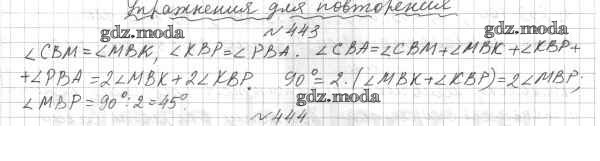 Упражнения для повторения
gdz.moda
№ 443
gdz.moda
∠CBM=∠MBK, ∠KBP=∠PBA. ∠CBA=∠CBM+∠MBK+∠KBP+
+∠PBA=2∠MBK+2∠KBP. 90°=2·(∠MBK+∠KBP)=2∠MBP;
∠MBP=90°:2=45°.
gdz.moda
№ 444